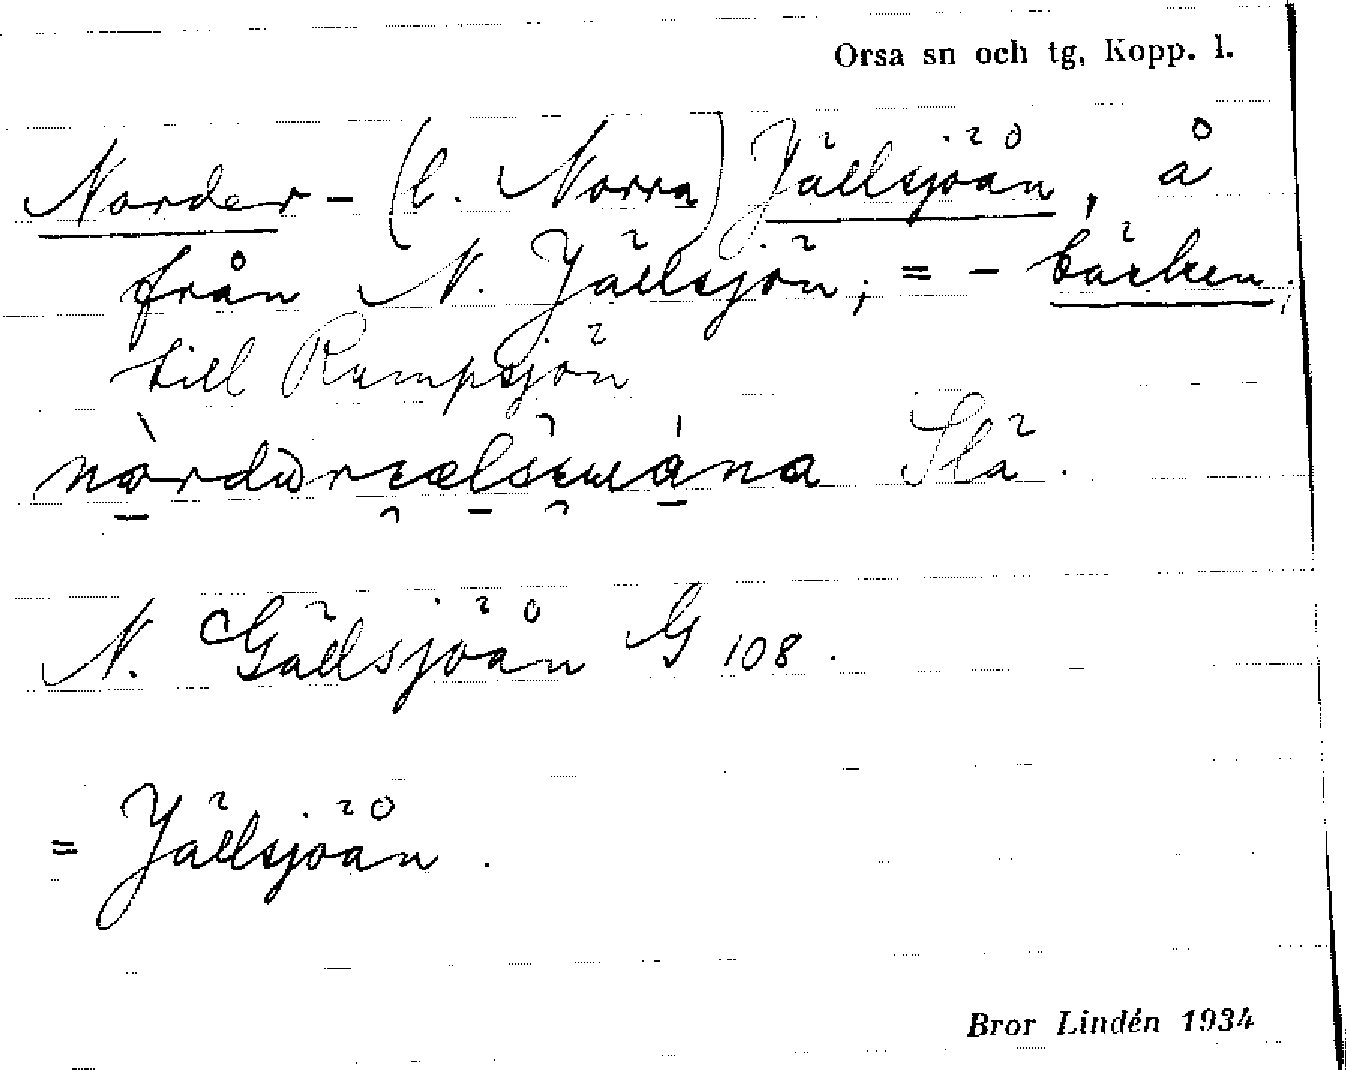 Orsa sn och tg, Kopp. l.
Norder- (l. Norra) Jällsjöån, å
från N. Jällsjön; = - bäcken;
till Rumpsjön
Slä.
N. Gällsjöån G 108.
= Jällsjöån.
Bror Lindén 1934